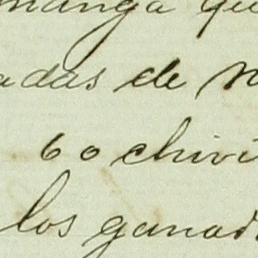 manga qu
adas de
60 chivi
los ganad